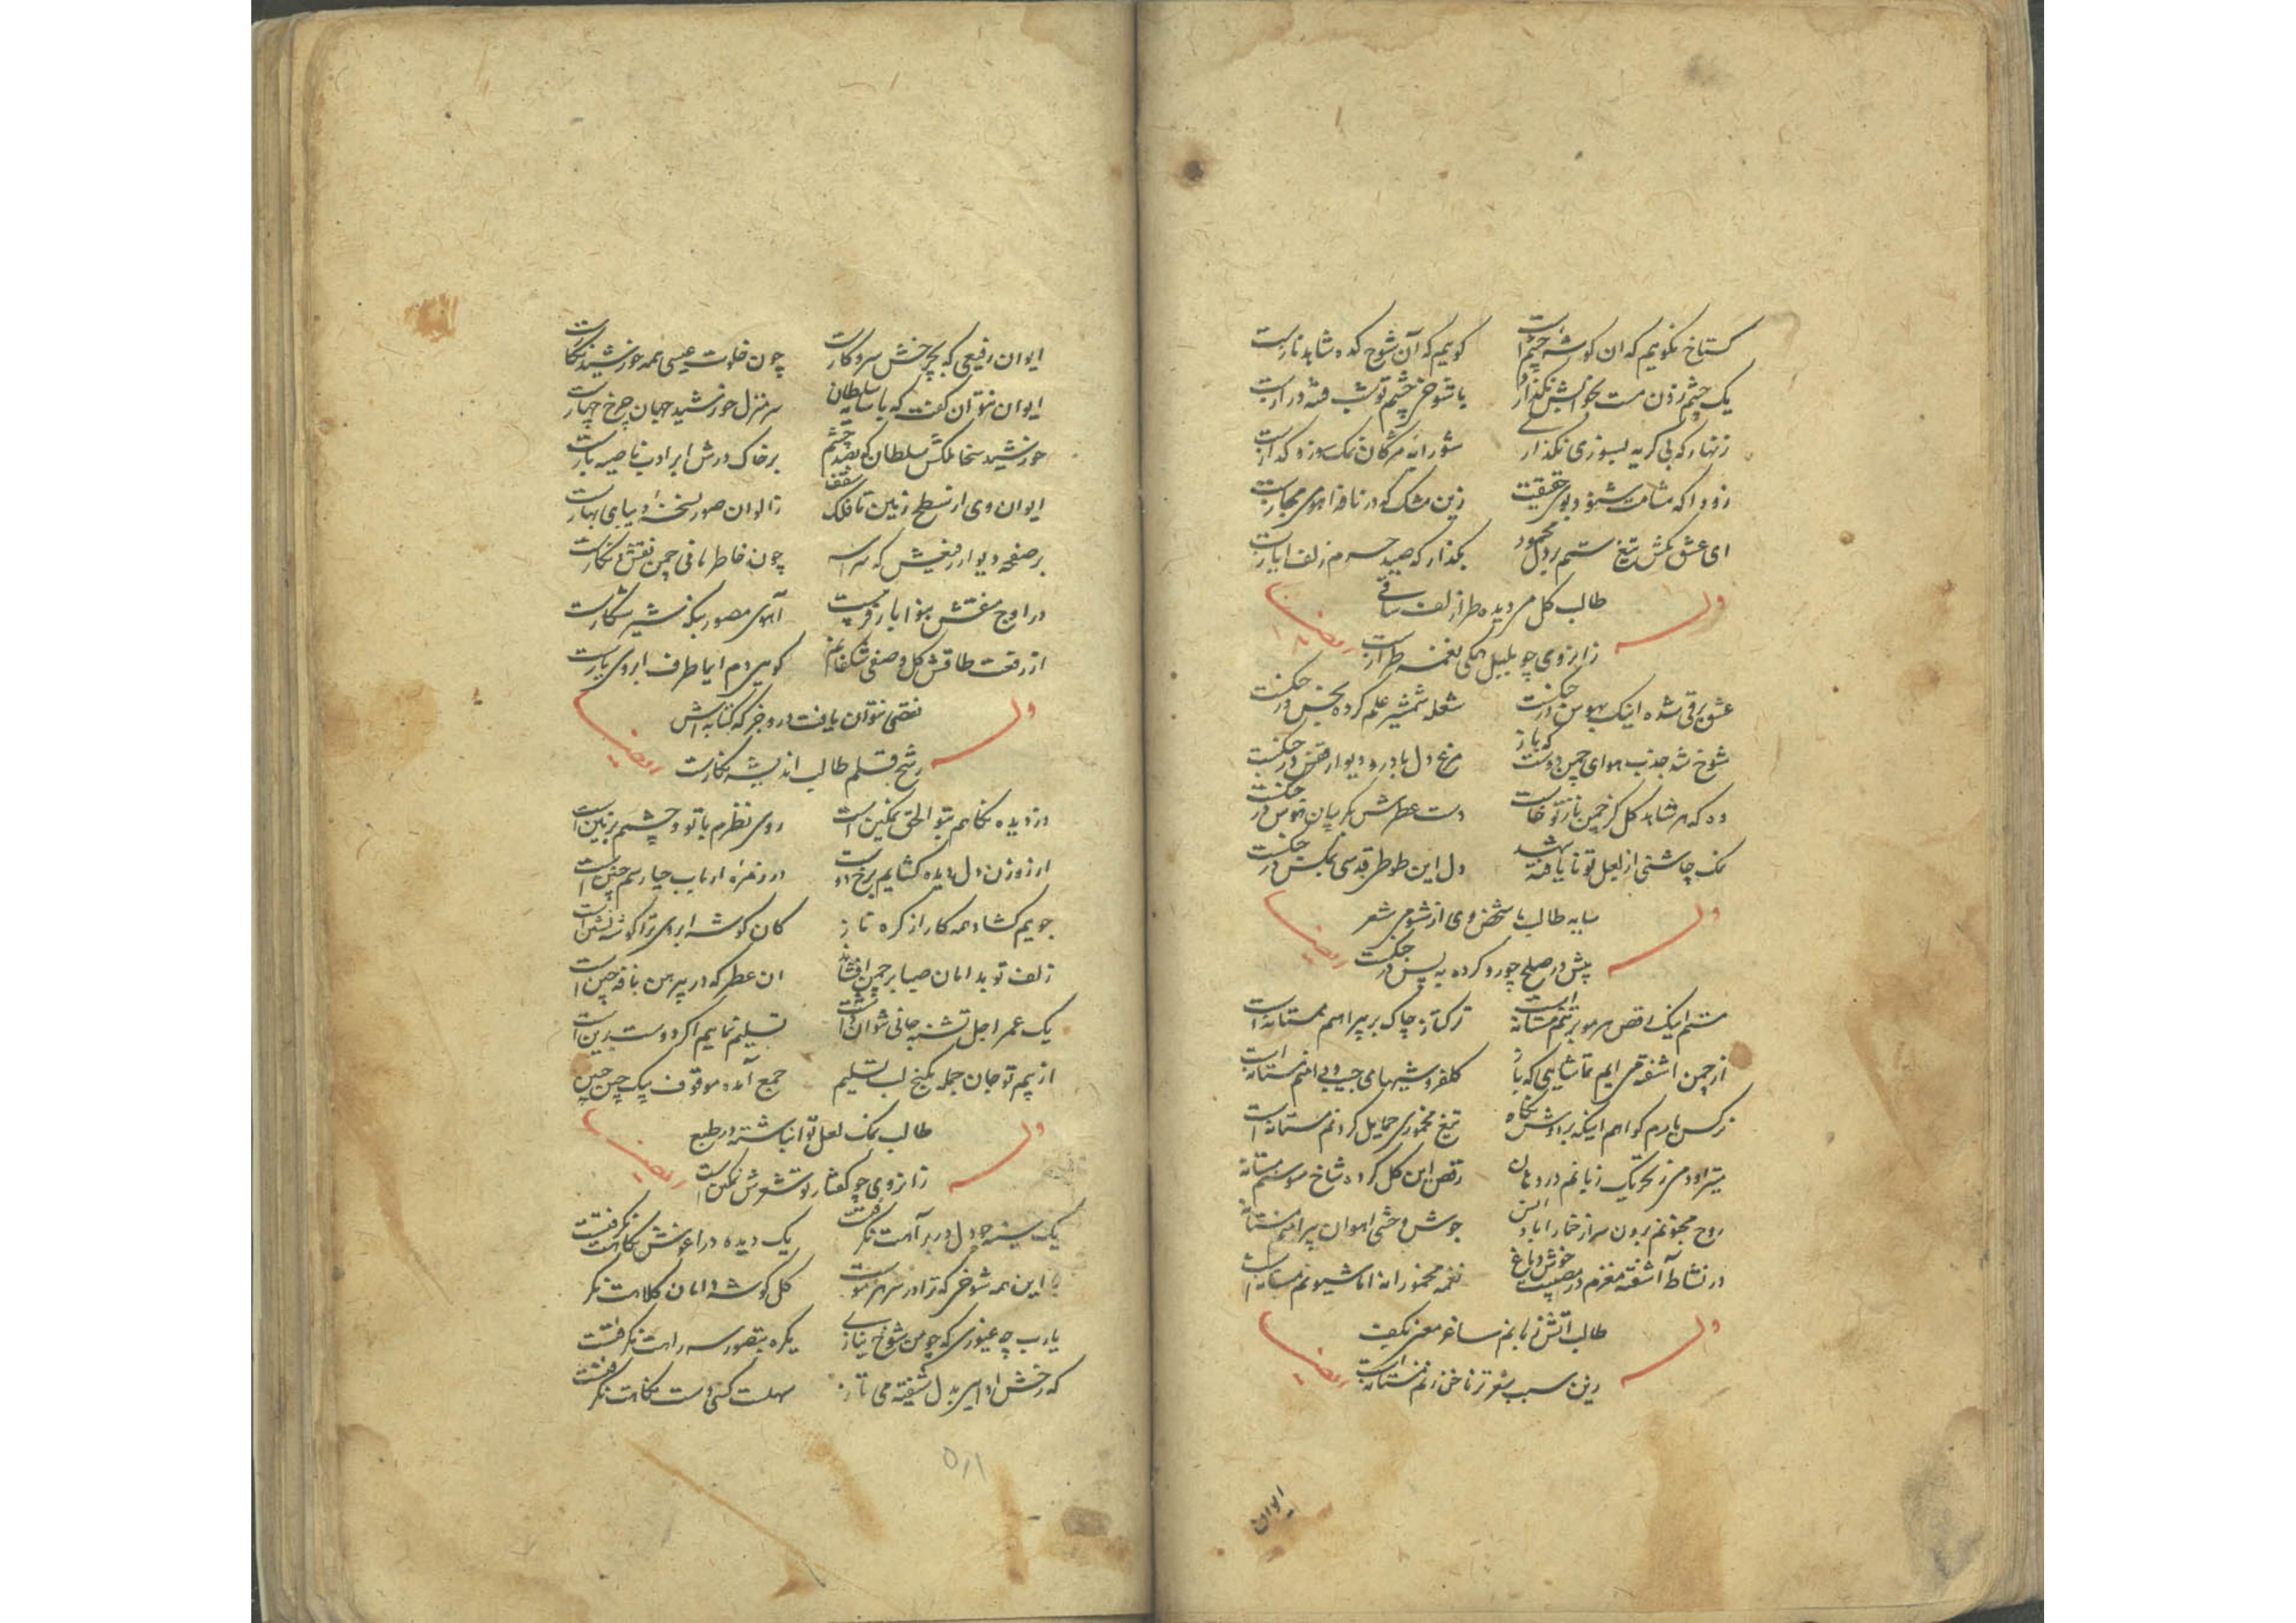 گستاخ نگویم که ان گوشه چشم است گویم که آن شوخ کده شاهد نازست
یک چشم زدن مست بخوابش نگذارد با شوخی چشم تو شب فتنه درازست
زنهار که بی گریه بسوزی نگذاری شورابه مژگان نمک سوز و گدازست
زودا که مشامت شنود بوی حقیقت زین مشک که در نافه اهوی مجازست
ای عشق مکش تیغ ستم بر دل محمود بگذار که صید حرم زلف ایازست
طالب گل من دیده طراز لف ساقی
وله زانروی چو بلبل همگی نغمه طرازست ایضا
عشق برقی شده اینک بهوس در جنگست شعله شمشیر علم کرده بخس در جنگست
شوخ شد جذب هوای چمن دوست که باز مرغ دل با در و دیوار قفس در جنگست
وه که هر شاهد گل کز چمن ناز تو خاست دست عطرش بگریبان هوس در جنگست
نمک چاشنی از لعل تو نایافته شهد دل این طوطی قدسی بمگس در جنگست
سایه طالب با شخص وی از شومی شعر
وله پیش در صلح چو رو کرده به پس در جنگست ایضا
منم اینک رقص هر مو بر تنم مستانه است ترکتاز چاک بر پیراهنم مستانه است
از چمن اشفته می ایم تماشایی که باز گلفروشیهای جیب و دامنم مستانه است
نرگس یارم گواهم اینکه بر دوش نگاه تیغ مخموری حمایل کردنم مستانه است
میتراود می ز تحریک زبانم در دهان رقص این گل کرده شاخ سوسنم مستانه
روح مجنونم برون سر از خمار اباد انس جوش وحشی اهوان پیرامنم مستانه
در نشاط آشفته مغزم در مصیبت خوش دماغ نغمه مخمورانه اما شیونم مستانه است
طالب اتش زبانم ساغر معنی بکف
وله زین سبب شعر تر ناخن زنم مستانه است ایضا
ایوان
ایوان رفیعی که بچرخش سر و کارست چون خلوت عیسی همه خورشید نگارست
ایوان نتوان گفت که با سایه سلطان سر منزل خورشید جهان چرخ چهارست
خورشید سخا ملکش سلطان که بصد چشم بر خاک درش ابر ادب ناصیه بارست
ایوان وی از سطح زمین تا فلک سقف ز الوان صور نسخه دیبای بهارست
بر صفحه دیوار رفیعش که سراسر چون خاطر مانی چمن نقش و نگارست
در اوج سقفش بنوا باز قریبست آهوی مصور بیکه شیر شکارست
از رفعت طاقش گل وصفی شکفانم گویی دم ایما طرف ابروی یارست
نقشی نتوان یافت در و جز که کتابه اش
وله رشح قلم طالب اندیشه نگارست ایضا
دزدیده نگاهم بتو الحق نمکین است روی نظرم با تو و چشمم بزمین است
از روزن دل دیده گشایم برخ دوست در زمره ارباب حیا رسم چنین است
جویم گشاد همه کار از گره ناز کان گوشه ابروی ترا گوشه نشین است
زلف تو بدامان صبا بر چمن افشاند ان عطر که در پیرهن نافه چین است
یک عمر اجل تشنه جانی نتوان داشت تسلیم نماییم اگر دوست برین است
از بیم تو جان جمله بکنج لب تسلیم جمع آمده موقوف بیک چین جبین
طالب نمک لعل تو انباشته در طبع
وله زانروی چو گفتار تو شعرش نمکین است ایضا
یک سینه چو دل در بر آهت نگرفتست یک دیده در اغوش نگاهت نگرفتست
این همه شوخی که ترا در سر هر موست گل گوشه دامان کلاهت نگر
یارب چه غیوری که چو من شوخ نیازی یکره بتصور سر راهت نگرفتست
که رخش ادا بر دل شیفته می تاز مهلت کسی دست نگاهت نگرفتست